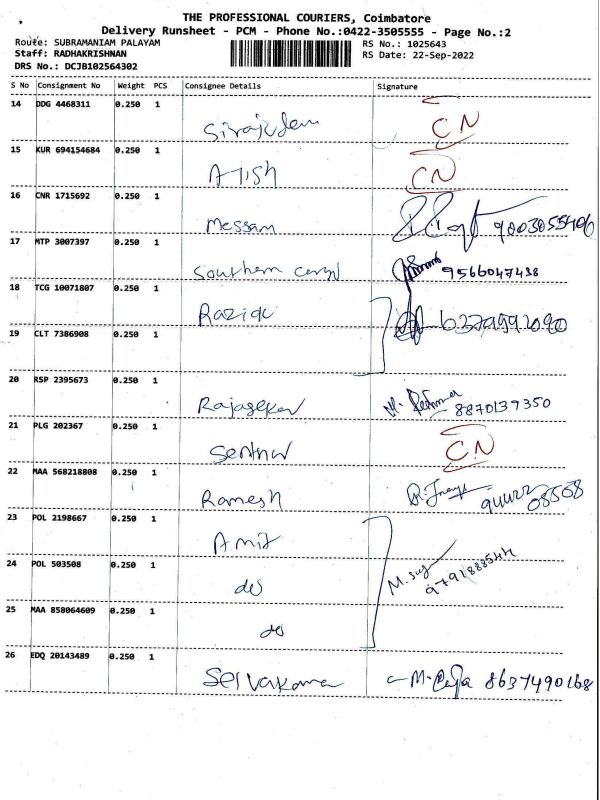 THE PROFESSIONAL COURIERS, Coimbatore
Delivery Runsheet - PCM - Phone No.:0422-3505555 - Page No.:2
Route: SUBRAMANIAM PALAYAM RS No.: 1025643
Staff: RADHAKRISHNAN RS Date: 22-Sep-2022
DRS No.: DCJB102564302
S No Consignment No Weight PCS Consignee Details Signature
14 DDG 4468311 0.250 1
CN
15 KUR 694154684 0.250 1
CN
16 CNR 1715692 0.250 1
Messam 9003055406
17 MTP 3007397 0.250 1
Southern 9566047438
18 TCG 10071807 0.250 1
19 CLT 7386908 0.250 1
20 RSP 2395673 0.250 1
Rajasekar 8870139350
21 PLG 202367 0.250 1
CN
22 MAA 568218808 0.250 1
Ramesh
23 POL 2198667 0.250 1
Amit
24 POL 503508 0.250 1
do
25 MAA 858064609 0.250 1
do
26 EDQ 20143489 0.250 1
8637490168